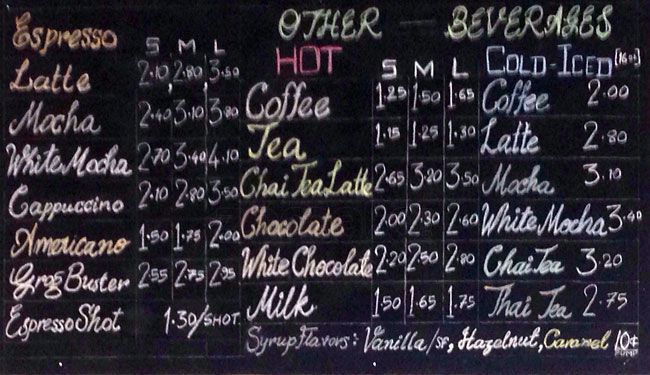 OTHER — BEVERAGES
Espresso S M L
Latte 2.10 2.80 3.50
Mocha 2.40 3.10 3.80
White Mocha 2.70 3.40 4.10
Cappuccino 2.10 2.80 3.50
Americano 1.50 1.75 2.00
Grog Buster 2.55 2.75 2.95
Espresso Shot 1.30/SHOT
HOT S M L
Coffee 1.25 1.50 1.65
Tea 1.15 1.25 1.30
Chai Tea Latte 2.65 3.20 3.50
Chocolate 2.00 2.30 2.60
White Chocolate 2.20 2.50 2.80
Milk 1.50 1.65 1.75
COLD-ICED [16oz]
Coffee 2.00
Latte 2.80
Mocha 3.10
White Mocha 3.40
Chai Tea 3.20
Thai Tea 2.75
Syrup Flavors: Vanilla/SF, Hazelnut, Caramel 10¢ PUMP